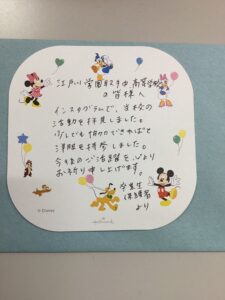 江戸川学園取手中・高等学校
の皆様へ
インスタグラムで、貴校の
活動を拝見しました。
少しでも協力できればと
洋服を持参しました。
今後のご活躍を心より
お祈り申し上げます。
卒業生
保護者
より
© Disney
Hallmark